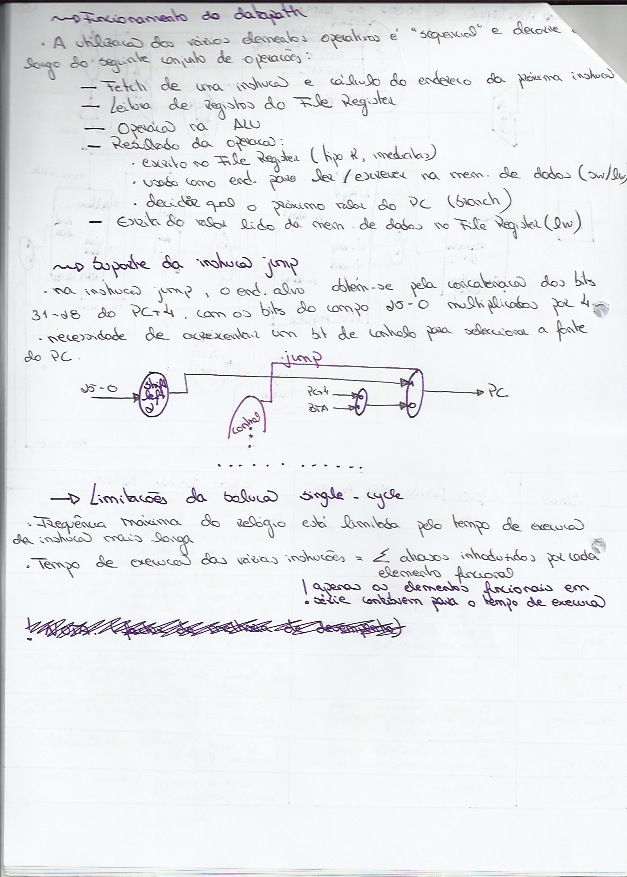 ~> Funcionamento do datapath
· A utilização dos vários elementos operativos é "sequencial" e decorre
longo do seguinte conjunto de operações:
— Fetch de uma instrução e cálculo do endereço da próxima instrução
— Leitura de Registos do File Register
— Operação na ALU
— Resultado da operação:
· escrito no File Register (tipo R, imediatas)
· usado como end. para ler/escrever na mem. de dados (sw/lw)
· decidir qual o próximo valor do PC (branch)
— Escrita do valor lido da mem. de dados no File Register (lw)
~> Suporte da instrução jump
· na instrução jump, o end. alvo obtém-se pela concatenação dos bits
31-28 do PC+4, com os bits do campo 25-0 multiplicados por 4
· necessidade de acrescentar um bit de controlo para seleccionar a fonte
do PC.
jump
25-0
shift left 2
control
PC+4
BTA
1
0
PC
—> Limitações da solução single-cycle
· Frequência máxima do relógio está limitada pelo tempo de execução
da instrução mais longa
· Tempo de execução das várias instruções = Σ atrasos introduzidos por cada
elemento funcional
! apenas os elementos funcionais em
série contribuem para o tempo de execução